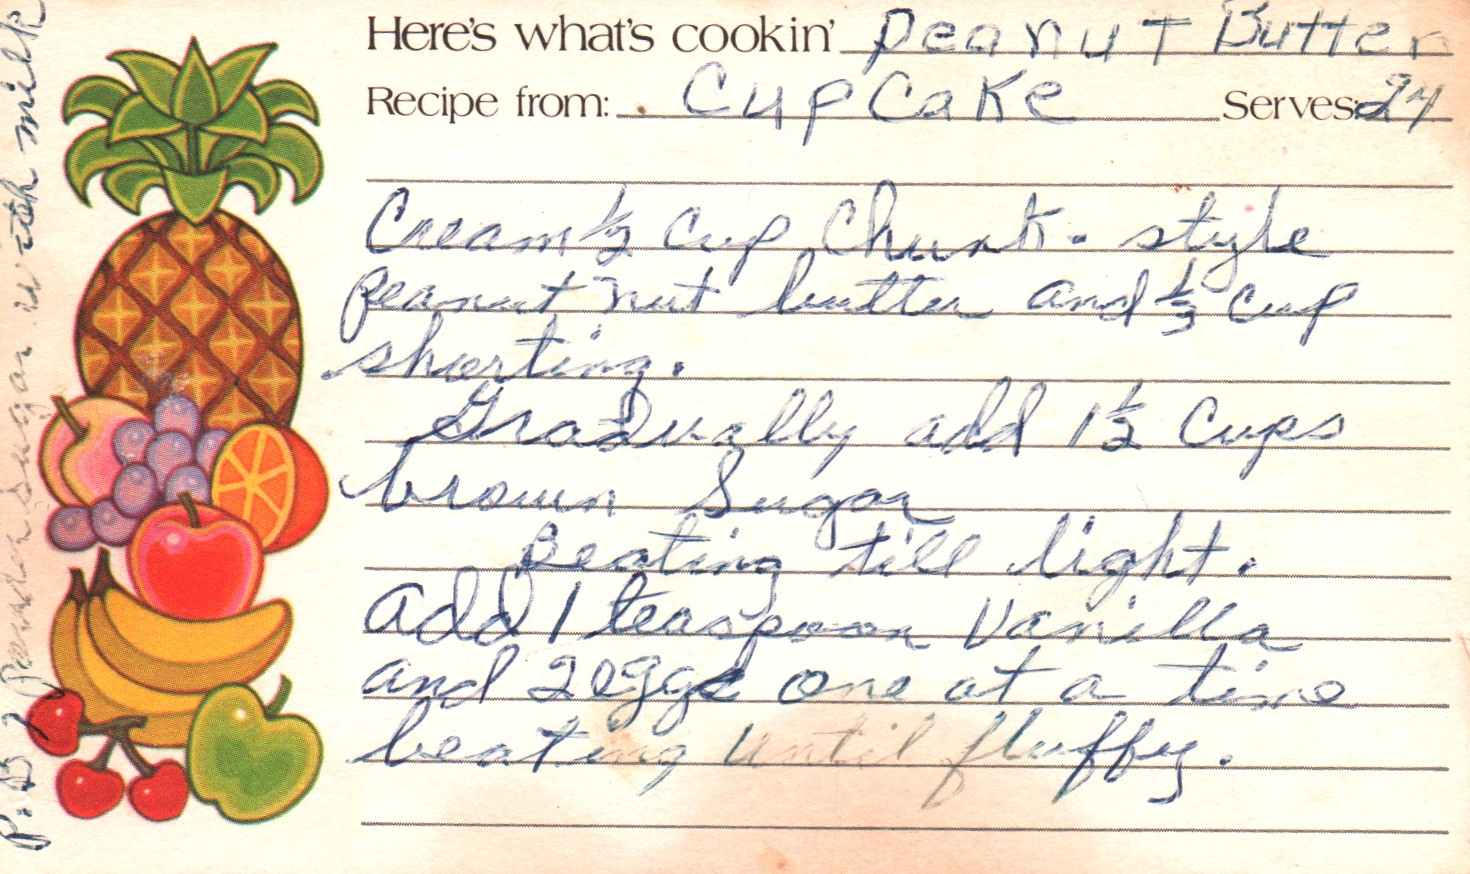 Here's what's cookin' Peanut Butter
Recipe from: Cup Cake Serves: 24
Cream 1/2 Cup Chunk-style
peanut nut butter and 1/3 Cup
shorting.
Gradually add 1 1/2 Cups
brown Sugar
Beating till light.
Add 1 teaspoon Vanilla
and 2 eggs one at a time
beating until fluffy.
P.B Powder Sugar with milk